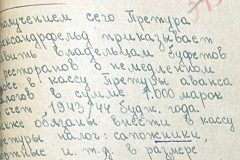 получением сего Претура
александрфельд приказывает
явить владельцам буфетов
ресторанов о немедленном
взносе в кассу Претуры аванса
налогов в сумме 1000 марок
счет 1943/44 бюдж. года.
также обязаны внести в кассу
Претуры налог: сапожники,
портные и.т.д. в размере